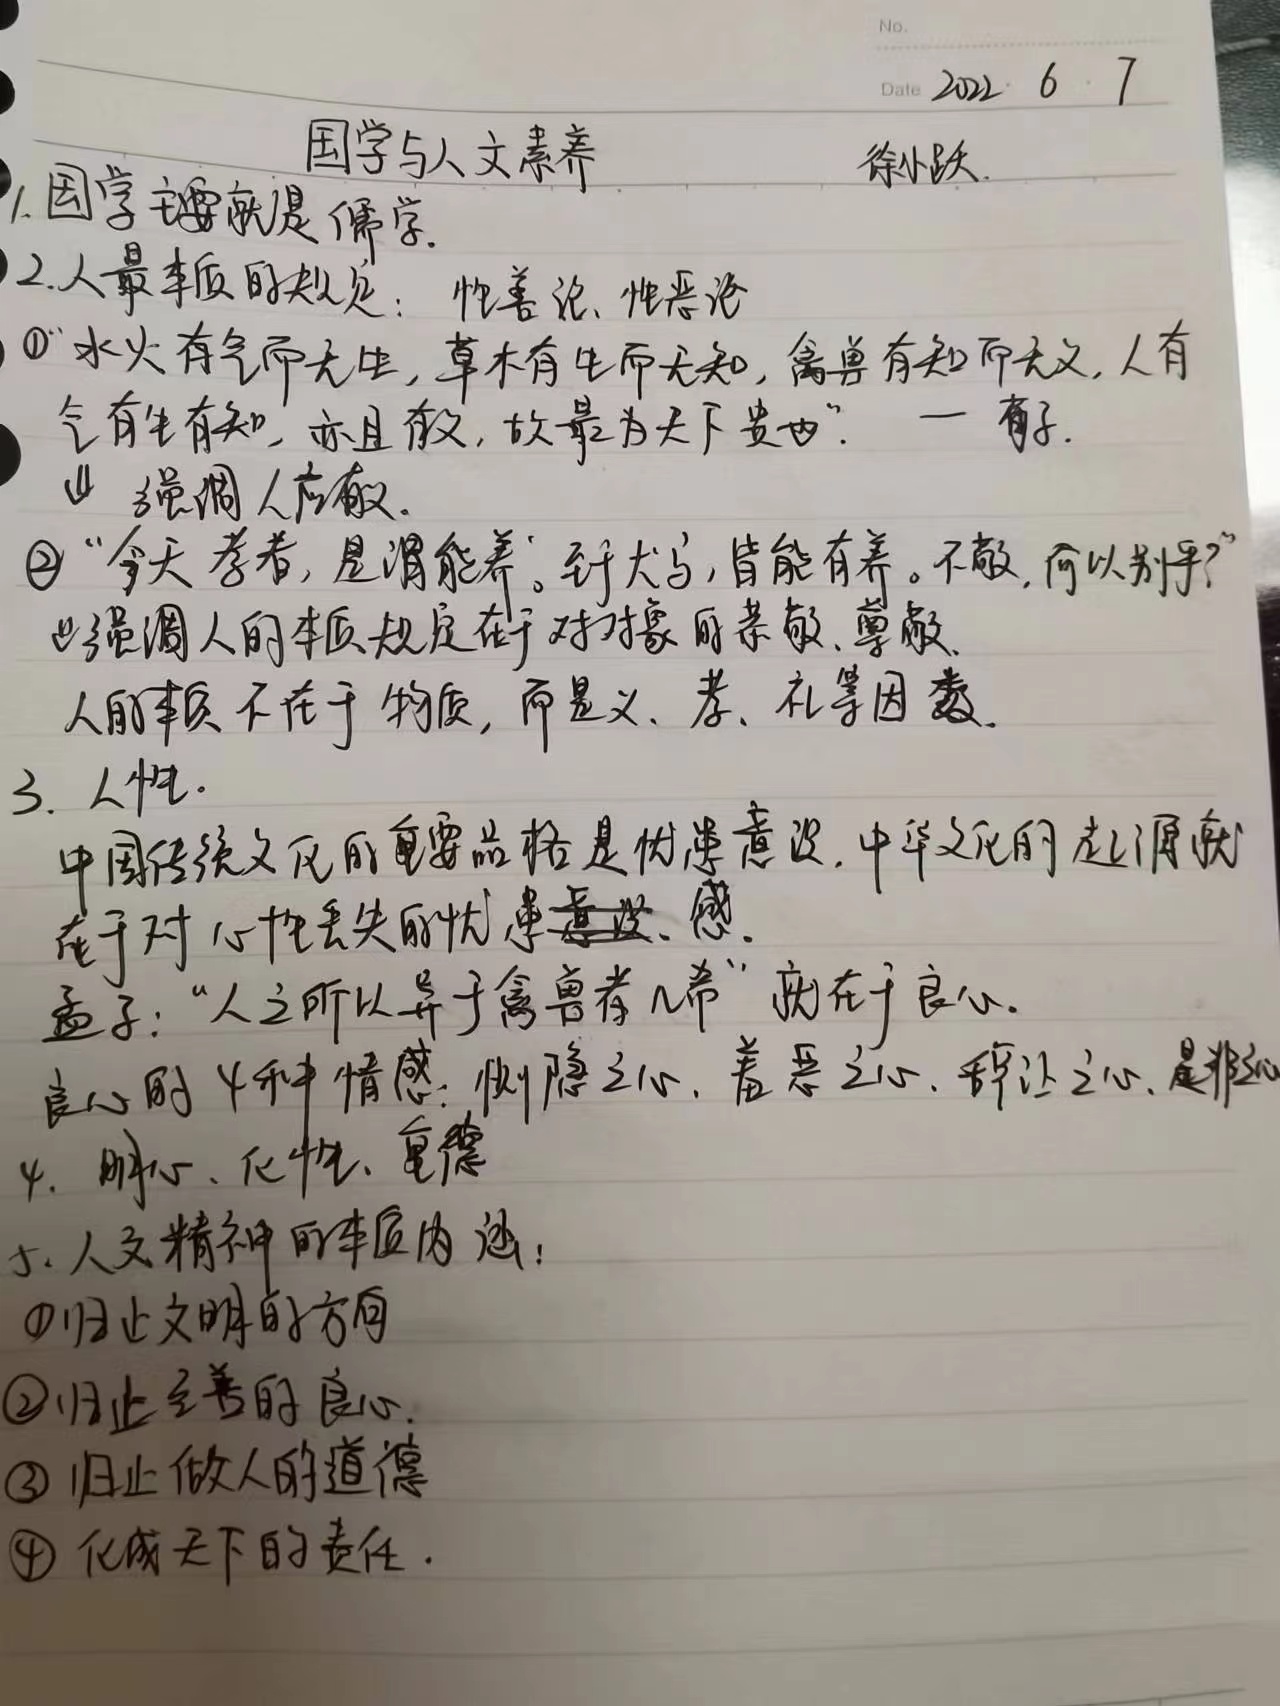 No.
Date 2022 6 7
国学与人文素养 徐小跃.
1.国学主要就是儒学.
2.人最本质的规定: 性善论、性恶论
①"水火有气而无生,草木有生而无知,禽兽有知而无义,人有
气有生有知,亦且有义,故最为天下贵也". — 荀子.
⇓ 强调人应有义.
②"今天孝者,是谓能养。至于犬马,皆能有养。不敬,何以别乎?"
⇓强调人的本质规定在于对对象的恭敬、尊敬.
人的本质不在于物质,而是义、孝、礼等因数.
3. 人性.
中国传统文化的重要品格是忧患意识.中华文化的起源就
在于对心性丢失的忧患感.
孟子:"人之所以异于禽兽者几希"就在于良心.
良心的4种情感:恻隐之心、羞恶之心、辞让之心、是非之心
4. 明心、化性、重德
5.人文精神的本质内涵:
①归止文明的方向
②归止至善的良心.
③归止做人的道德
④化成天下的责任.